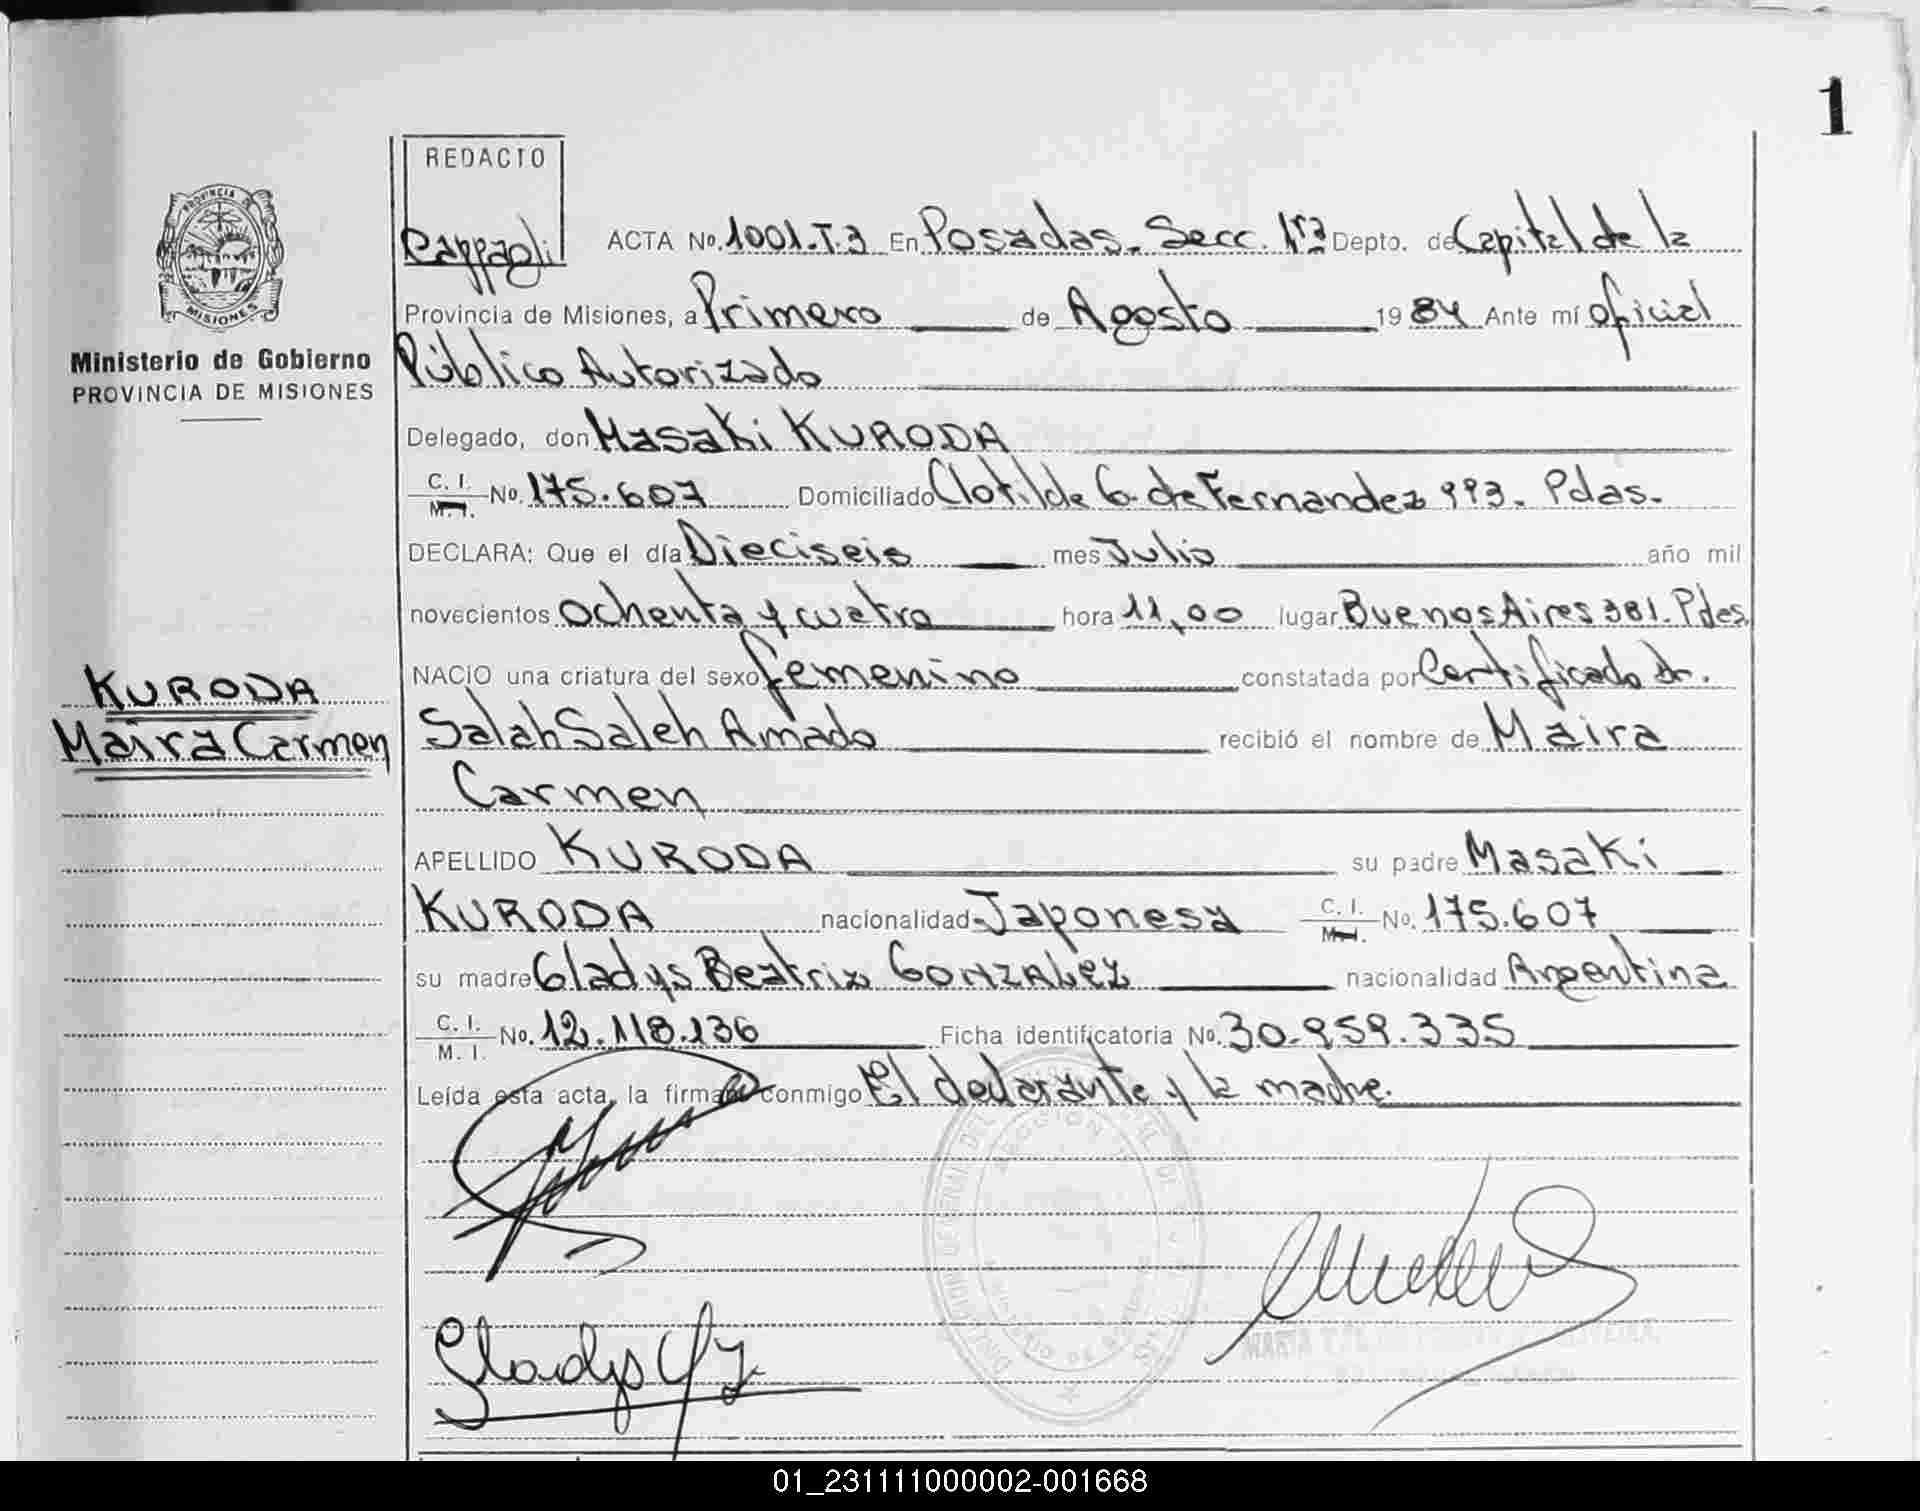 1
REDACTO
Cappagli
PROVINCIA DE
MISIONES
Ministerio de Gobierno
PROVINCIA DE MISIONES
KURODA
Maira Carmen
ACTA No. 1001.T.3 En Posadas. Secc. 1ra Depto. de Capital de la
Provincia de Misiones, a Primero de Agosto 1984 Ante mí oficial
Público Autorizado
Delegado, don Masaki KURODA
C. I. M. I. No. 175.607 Domiciliado Clotilde G. de Fernandez 993. Pdas.
DECLARA: Que el día Dieciseis mes Julio año mil
novecientos ochenta y cuatro hora 11,00 lugar Buenos Aires 381. Pdas
NACIO una criatura del sexo femenino constatada por Certificado dr.
Salah Saleh Amado recibió el nombre de Maira
Carmen
APELLIDO KURODA su padre Masaki
KURODA nacionalidad Japonesa C. I. M. I. No. 175.607
su madre Gladys Beatriz GONZALEZ nacionalidad Argentina
C. I. M. I. No. 12.118.136 Ficha identificatoria No. 30.959.335
Leída esta acta, la firman conmigo El declarante y la madre.
Gladys
01_231111000002-001668